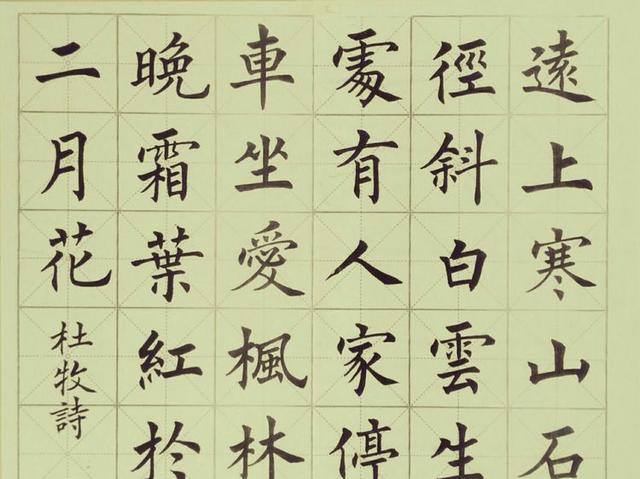 遠上寒山石
徑斜白雲生
處有人家停
車坐愛楓林
晚霜葉紅於
二月花
杜牧詩